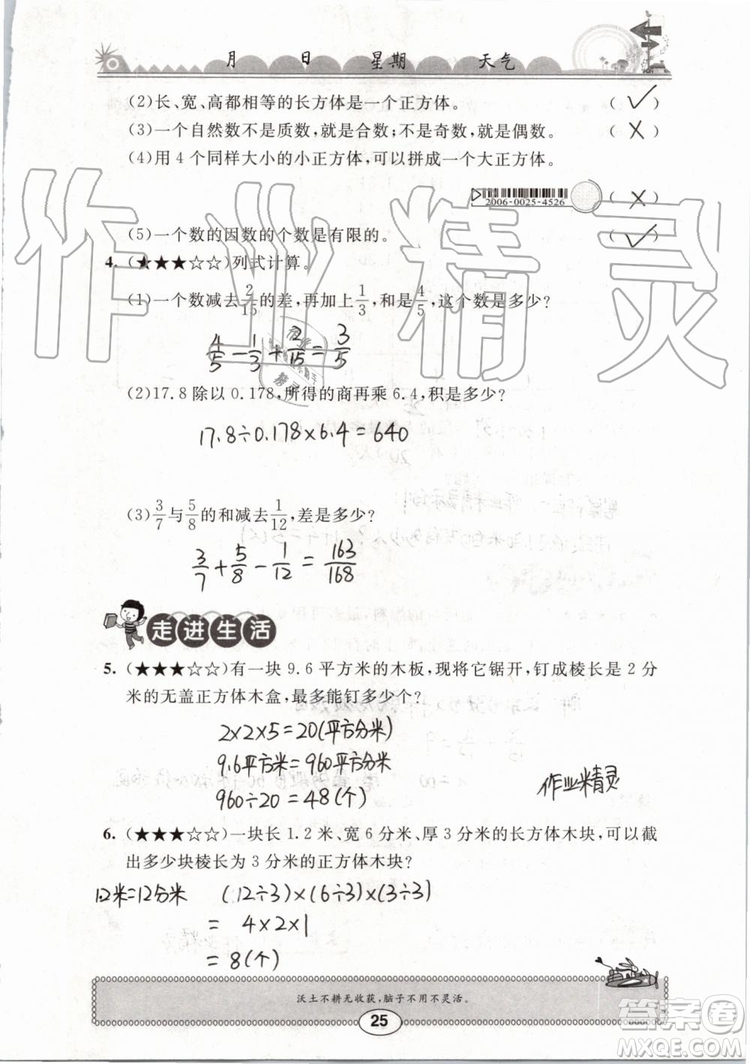 月 日 星期 天气
(2)长、宽、高都相等的长方体是一个正方体。 ( ✓ )
(3)一个自然数不是质数，就是合数；不是奇数，就是偶数。 ( × )
(4)用 4 个同样大小的小正方体，可以拼成一个大正方体。
2006-0025-4526
( × )
(5)一个数的因数的个数是有限的。 ( ✓ )
作业精灵
4. (★★★☆☆)列式计算。
(1)一个数减去2/15的差，再加上1/3，和是4/5，这个数是多少？
4/5-1/3+2/15=3/5
(2)17.8 除以 0.178，所得的商再乘 6.4，积是多少？
17.8÷0.178×6.4=640
(3)3/7与5/8的和减去1/12，差是多少？
3/7+5/8-1/12=163/168
走进生活
5. (★★★☆☆)有一块 9.6 平方米的木板，现将它锯开，钉成棱长是 2 分
米的无盖正方体木盒，最多能钉多少个？
2×2×5=20(平方分米)
9.6平方米=960平方分米
960÷20=48(个)
作业精灵
6. (★★★☆☆)一块长 1.2 米、宽 6 分米、厚 3 分米的长方体木块，可以截
出多少块棱长为 3 分米的正方体木块？
1.2米=12分米 (12÷3)×(6÷3)×(3÷3)
=4×2×1
=8(个)
沃土不耕无收获，脑子不用不灵活。
25
答案圈
MXQE.COM